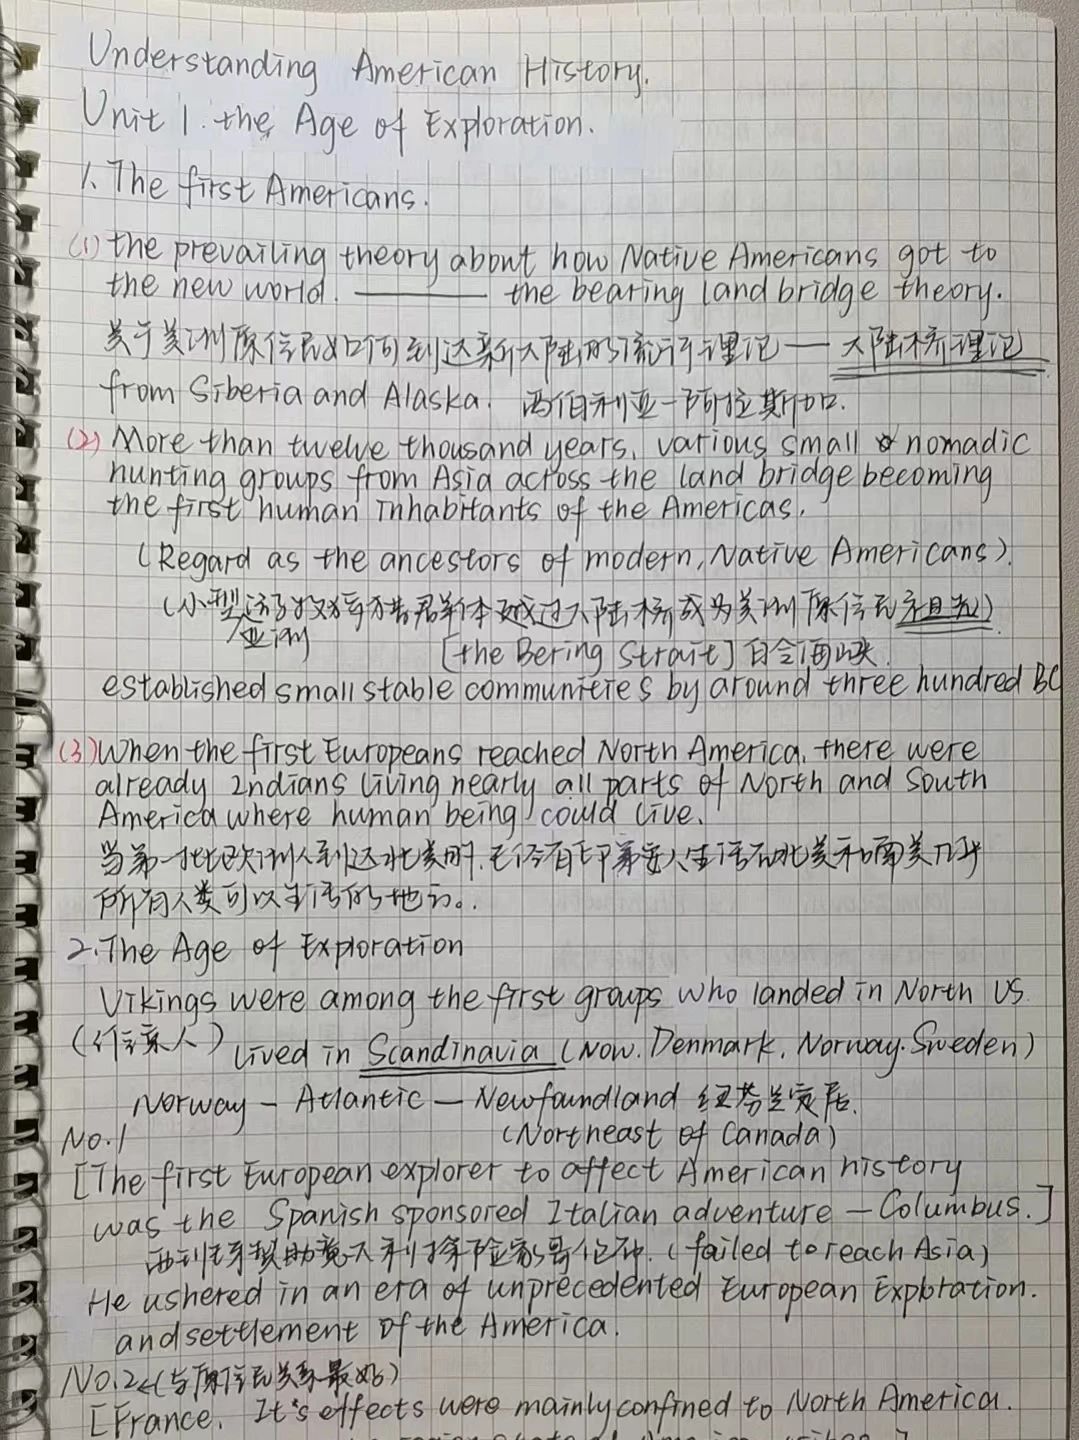 Understanding American History.
Unit 1. the Age of Exploration.
1. The first Americans.
(1) the prevailing theory about how Native Americans got to
the new world. ——— the bearing land bridge theory.
关于美洲原住民如何到达新大陆的流行理论 — 大陆桥理论
from Siberia and Alaska. 西伯利亚-阿拉斯加.
(2) More than twelve thousand years, various small nomadic
hunting groups from Asia across the land bridge becoming
the first human inhabitants of the Americas.
(Regard as the ancestors of modern, Native Americans).
(小型游牧狩猎群体越过大陆桥成为美洲原住民祖先)
亚洲
[the Bering Strait] 白令海峡.
established small stable communities by around three hundred BC
(3) When the first Europeans reached North America, there were
already Indians living nearly all parts of North and South
America where human being could live.
当第一批欧洲人到达北美时,已经有印第安人生活在北美和南美几乎
所有人类可以生活的地方。
2. The Age of Exploration
Vikings were among the first groups who landed in North US
(维京人) lived in Scandinavia (Now. Denmark, Norway. Sweden)
Norway — Atlantic — Newfoundland 纽芬兰定居.
No.1 (Northeast of Canada)
[The first European explorer to affect American history
was the Spanish sponsored Italian adventure — Columbus.]
西班牙赞助意大利探险家哥伦布. (failed to reach Asia)
He ushered in an era of unprecedented European Exploration.
and settlement of the America.
No.2 (与原住民关系最好)
[France. It's effects were mainly confined to North America.